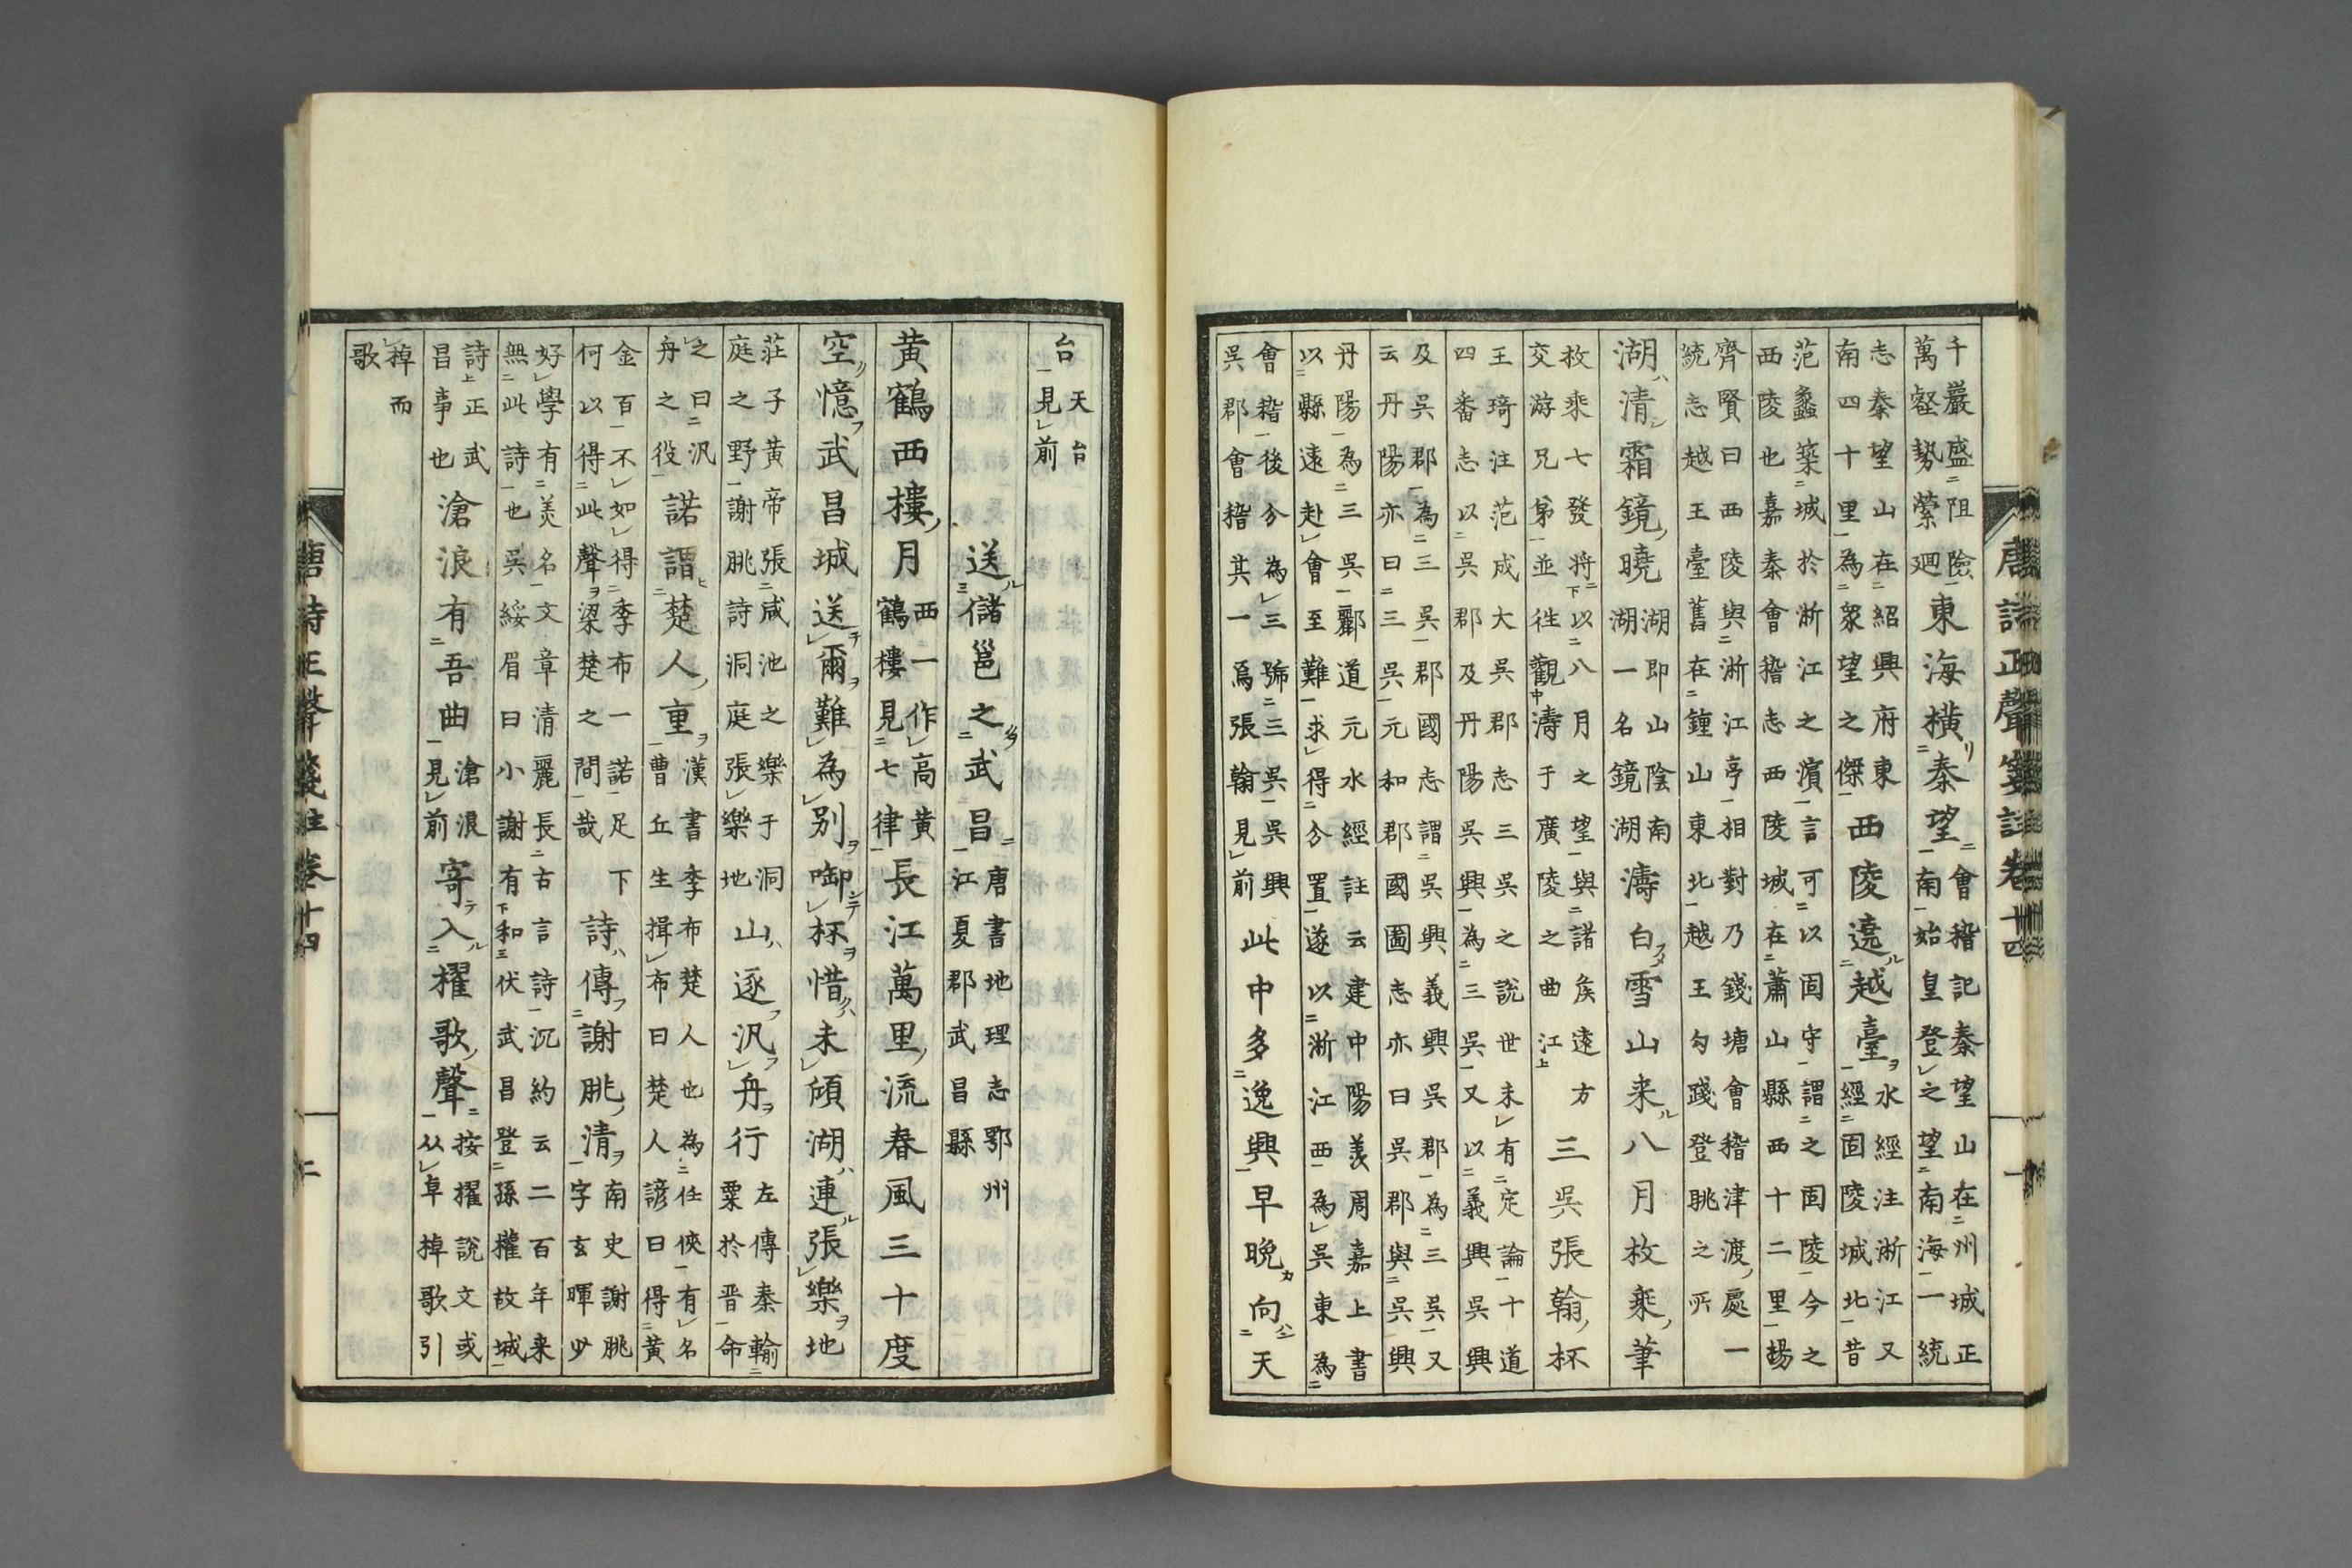 唐詩正聲箋註卷十四 一
千巖盛阻險萬壑勢縈廻東海橫秦望會稽記秦望山在州城正南始皇登之望南海一統
志秦望山在紹興府東南四十里為衆望之傑西陵遶越臺水經注浙江又經固陵城北昔
范蠡築城於浙江之濱言可以固守謂之固陵今之西陵也嘉秦會稽志西陵城在蕭山縣西十二里楊
齊賢曰西陵與浙江亭相對乃錢塘會稽津渡處一統志越王臺舊在鍾山東北越王勾踐登眺之所
湖清霜鏡曉湖即山陰南湖一名鏡湖濤白雪山来八月枚乘筆
枚乘七發將以八月之望與諸矦遠方交游兄弟並徃觀濤于廣陵之曲江三吳張翰杯
王琦注范成大吳郡志三吳之說世未有定論十道四番志以吳郡及丹陽吳興為三吳又以義興吳興
及吳郡為三吳郡國志謂吳興義興吳郡為三吳又云丹陽亦曰三吳元和郡國圖志亦曰吳郡與吳興
丹陽為三吳酈道元水經註云建中陽羨周嘉上書以縣遠赴會至難求得分置遂以浙江西為吳東為
會稽後分為三號三吳吳興吳郡會稽其一焉張翰見前此中多逸興早晚向天
台天台見前
送儲邕之武昌唐書地理志鄂州江夏郡武昌縣
黄鶴西樓月西一作高黄鶴樓見七律長江萬里流春風三十度
空憶武昌城送爾難為別啣杯惜未傾湖連張樂地
莊子黄帝張咸池之樂于洞庭之野謝朓詩洞庭張樂地山逐汎舟行左傳秦輸粟於晋命
之曰汎舟之役諾謂楚人重漢書季布楚人也為任俠有名曹丘生揖布曰楚人諺曰得黄
金百不如得季布一諾足下何以得此聲梁楚之間哉詩傳謝朓清南史謝朓字玄暉少
好學有羙名文章清麗長古言詩沉約云二百年来無此詩也吳綏眉曰小謝有和伏武昌登孫權故城
詩正武昌事也滄浪有吾曲滄浪見前寄入櫂歌聲按櫂說文或从卓掉歌引
掉而歌
唐詩正聲箋註卷十四 二